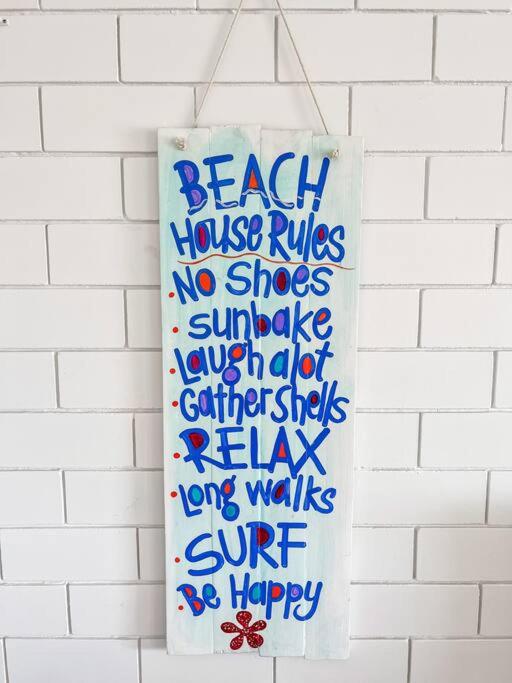 BEACH
House Rules
No Shoes
sunbake
Laugh alot
Gather shells
RELAX
Long walks
SURF
Be Happy